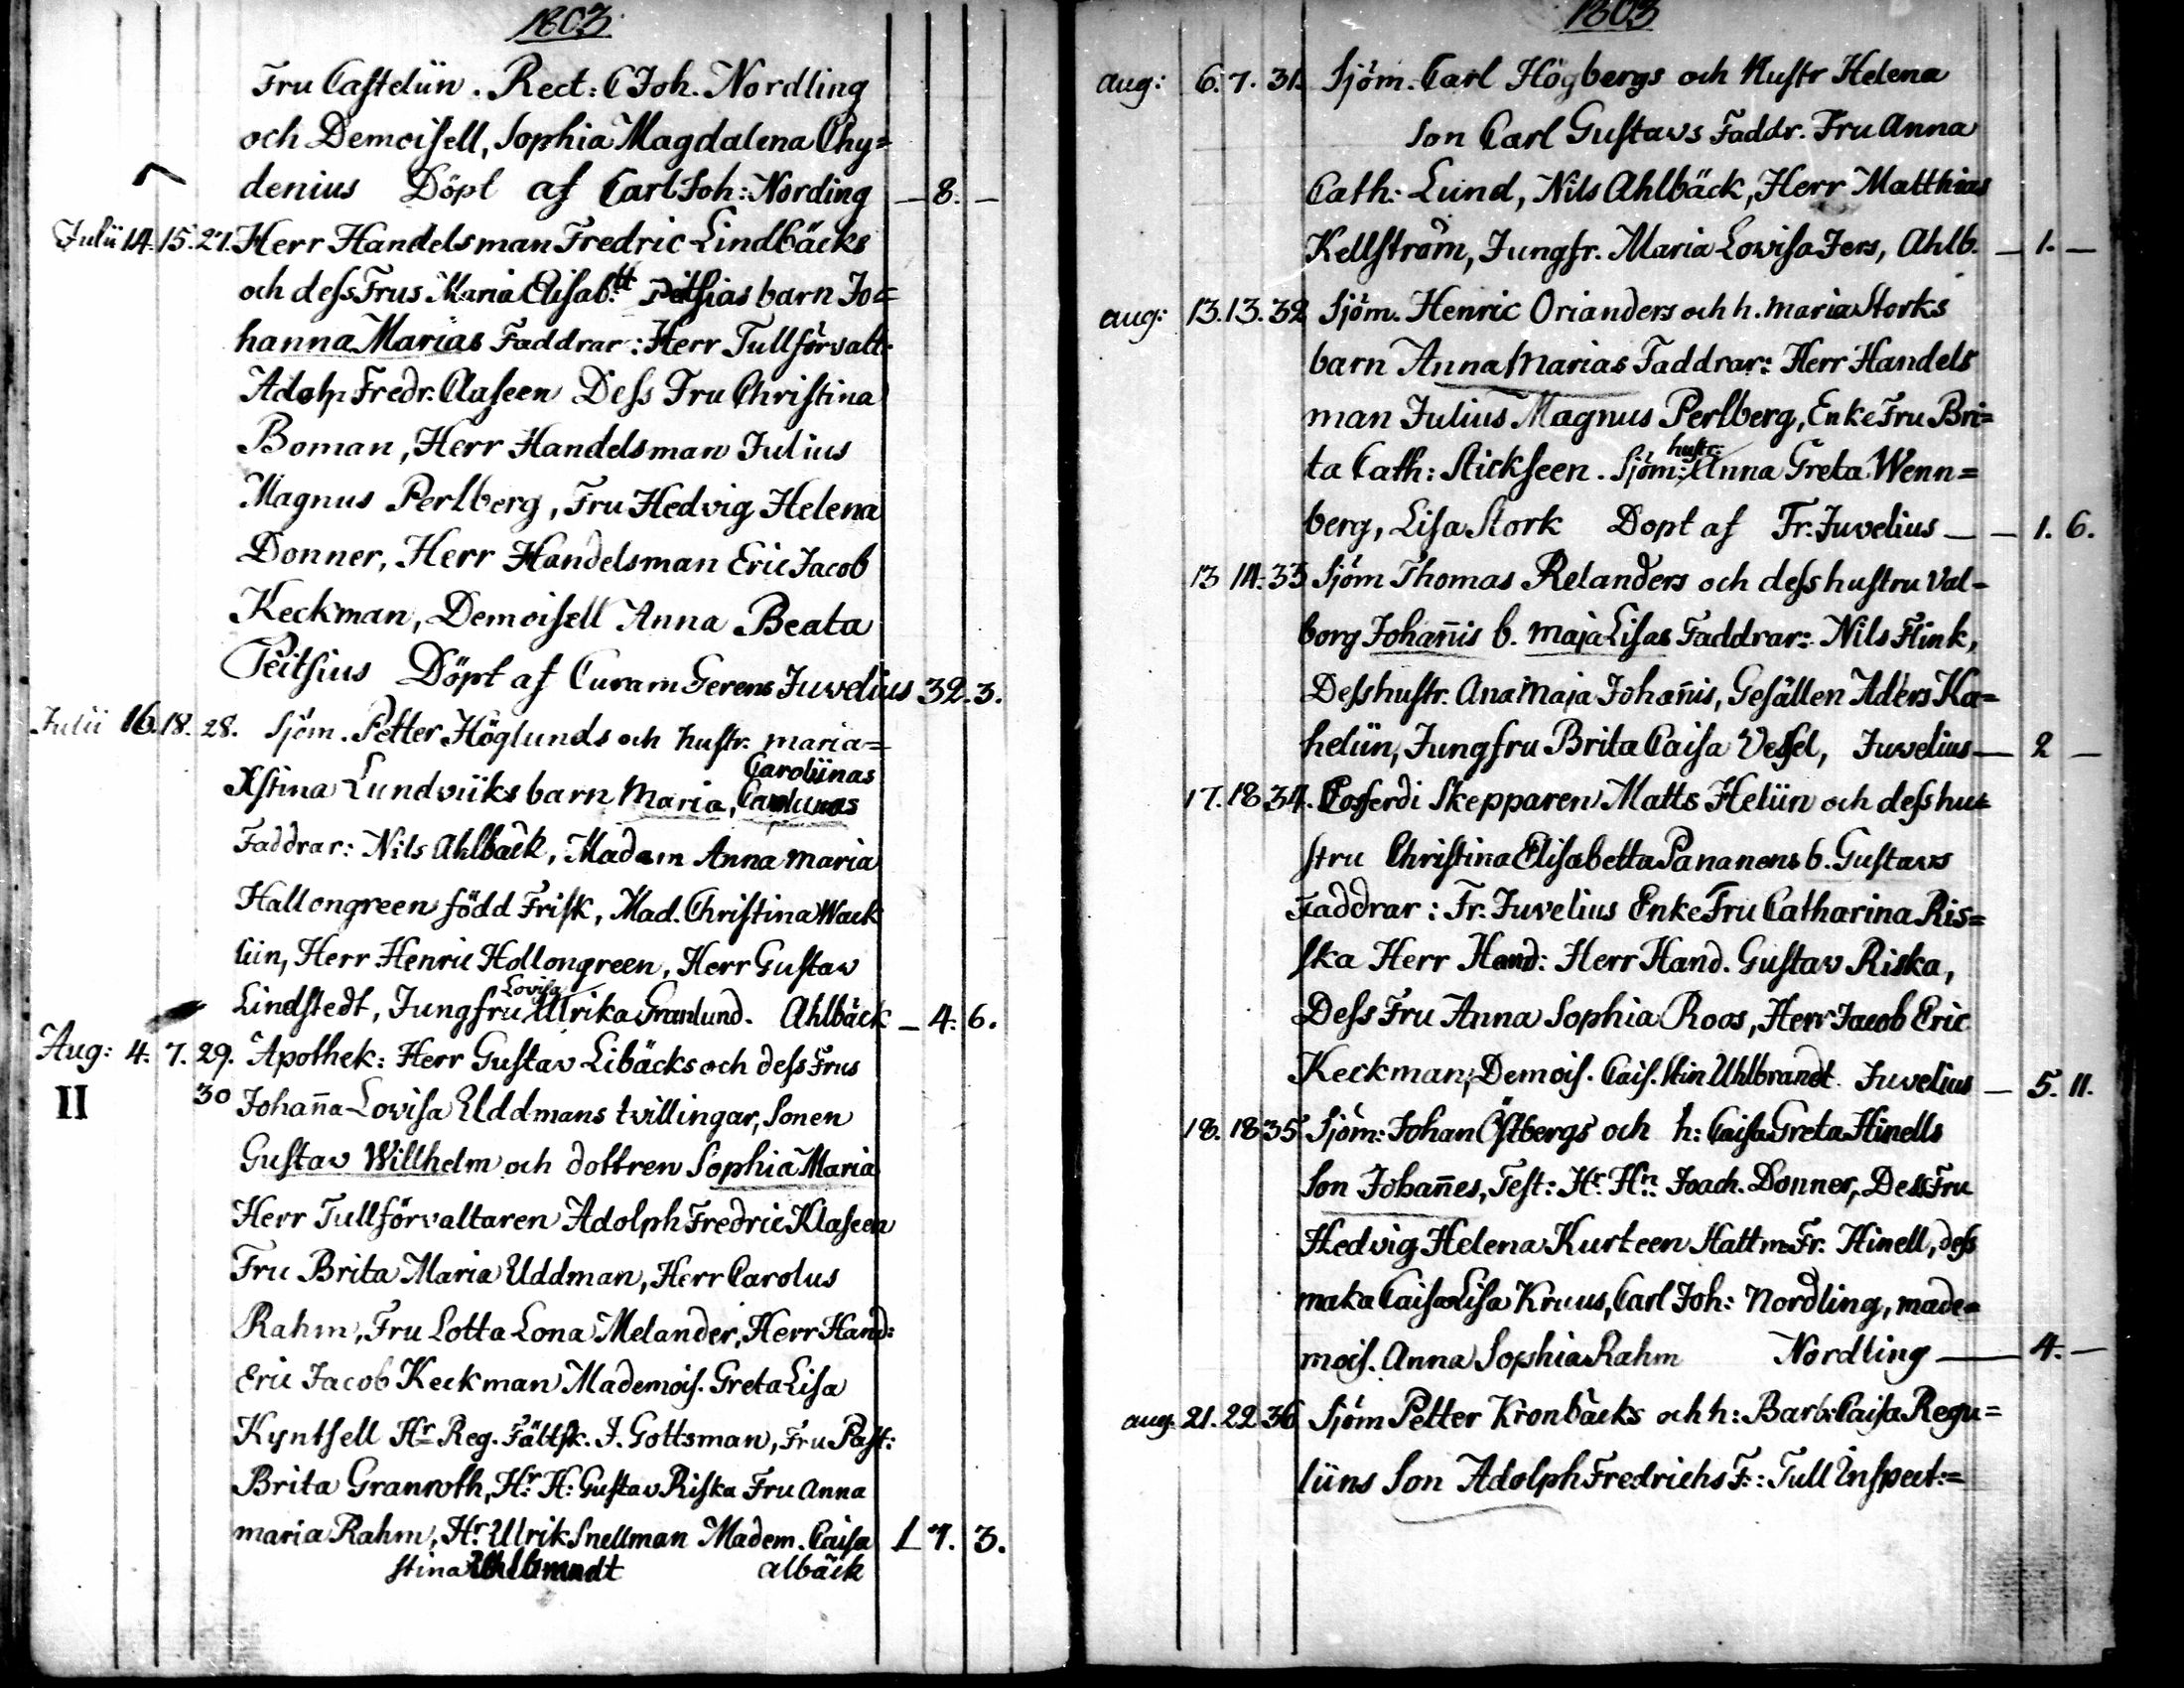 1803.
Fru Castelün. Rect: C Joh. Nordling
och Demoisell, Sophia Magdalena Chy=
denius Döpt af Carl Joh: Nording — 8. —
Julii 14. 15. 27. Herr Handelsman Fredric Lindbäcks
och dess Frus Maria Elisab:tt Peitsias barn Jo=
hanna Marias Faddrar: Herr Tullförvalt:
Adolp Fredr. Claseen Dess Fru Christina
Boman, Herr Handelsman Julius
Magnus Perlberg, Fru Hedvig Helena
Donner, Herr Handelsman Eric Jacob
Keckman, Demoisell Anna Beata
Peitsius Döpt af Curam Gerens Juvelius 32. 3.
Julii 16. 18. 28. Sjöm. Petter Höglunds och hustr. maria=
Caroliinas
Xstina Lundviiks barn Maria,
Faddrar: Nils Ahlbäck, Madam Anna maria
Hallongreen född Frisk, Mad. Christina Wack
liin, Herr Henric Hollongreen, Herr Gustav
Lovisa
Lindstedt, Jungfru Ulrika Granlund. Ahlbäck — 4. 6.
Aug: 4. 7. 29. Apothek: Herr Gustav Libäcks och dess Frus
II 30 Johan̄a Lovisa Uddmans tvillingar, Sonen
Gustav Willhelm och dottren Sophia Maria
Herr Tullförvaltaren Adolph Fredric Klaseen
Fru Brita Maria Uddman, Herr Carolus
Rahm, Fru Lotta Lona Melander, Herr Hand:
Eric Jacob Keckman Mademois. Greta Lisa
Kyntsell Hr Reg. Fältsk. J. Gottsman, Fru Past:
Brita Granroth, Hr. H: Gustav Riska Fru Anna
maria Rahm, Hr Ulrik Snellman Madem. Caisa 1 7. 3.
stina Uhlbrandt albäck
1803
aug: 6. 7. 31. Sjöm. Carl Högbergs och Hustr Helena
son Carl Gustavs Faddr. Fru Anna
Cath: Lund, Nils Ahlbäck, Herr Matthias
Kellström, Jungfr. Maria Lovisa Fers, Ahlb. — 1. —
aug: 13. 13. 32 Sjöm. Henric Orianders och h. maria Storks
barn Anna Marias Faddrar: Herr Handels
man Julius Magnus Perlberg, Enke Fru Bri=
hustr:
ta Cath: Stickseen. Sjöm: Anna Greta Wenn=
berg, Lisa Stork Dopt af Fr. Juvelius — — 1. 6.
13 14. 33 Sjöm Thomas Relanders och dess hustru Val=
borg Johan̄is b. maja Lisas Faddrar: Nils Flink,
Dess hustr. Ana Maja Johan̄is, Gesällen Aders Ka=
heliin, Jungfru Brita Caisa Vessel, Juvelius — 2 —
17. 18 34. Cofferdi Skepparen Matts Heliin och dess hu=
stru Christina Elisabetta Pananens b. Gustavs
Faddrar: Fr. Juvelius Enke Fru Catharina Ris=
ska Herr Hand: Herr Hand. Gustav Riska,
Dess Fru Anna Sophia Roos, Herr Jacob Eric
Keckman, Demois. Cais. Stin Uhlbrandt. Juvelius — 5. 11.
18. 18 35 Sjöm: Johan Östbergs och h: Caisa Greta Hinells
Son Johan̄es, Test: Hr. Hn: Joach. Donner, Dess Fru
Hedvig Helena Kurteen Hattm Fr. Hinell, dess
maka Caisa Lisa Kruus, Carl Joh: Nordling, made=
mois. Anna Sophia Rahm Nordling — 4. —
aug. 21. 22 36 Sjöm Petter Kronbäcks och h: Barb: Caisa Regu=
liins Son Adolph Fredrichs F.: Tull Inspect:=